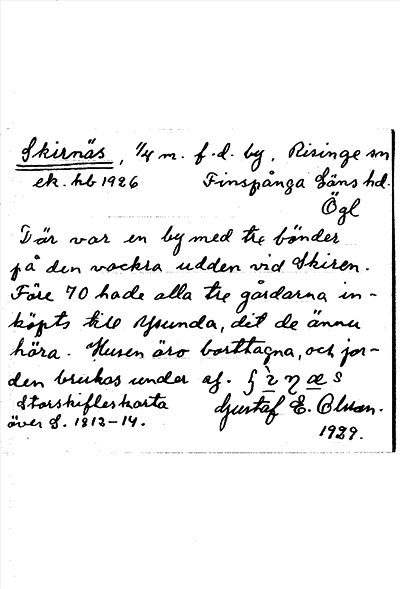 Skirnäs, 1/4 m. f.d. by, Risinge sn
ek. hb 1926 Finspånga Läns hd.
Ögl
Där var en by med tre bönder
på den vackra udden vid Skiren.
Före 70 hade alla tre gårdarna in-
köpts till Ysunda, dit de ännu
höra. Husen äro borttagna, och jor-
den brukas under af.
Storskifteskarta Gustaf E. Olsson.
över S. 1812-14.
1929.